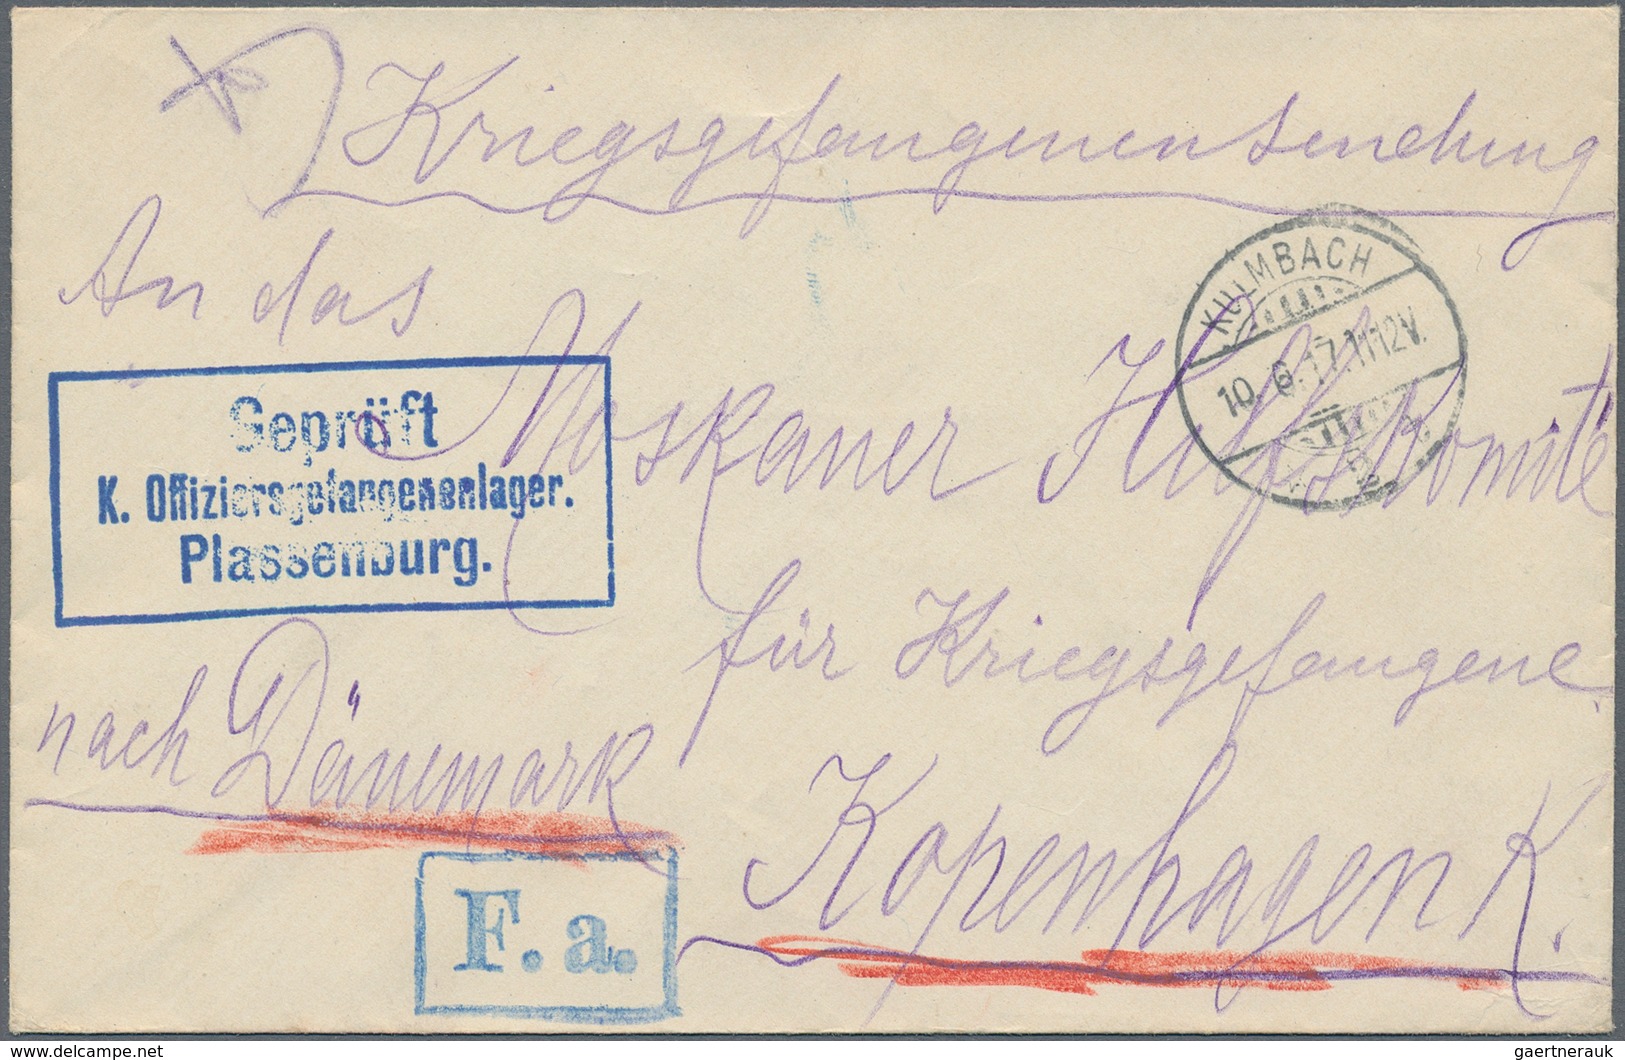 Kriegsgefangenensendung
An das
Moskauer Hilfskomité
für Kriegsgefangene
nach Dänemark
Kopenhagen K.
Geprüft
K. Offiziersgefangenenlager.
Plassenburg.
KULMBACH
10. 6. 17. 11-12V.
F. a.
delcampe.net
gaertnerauk